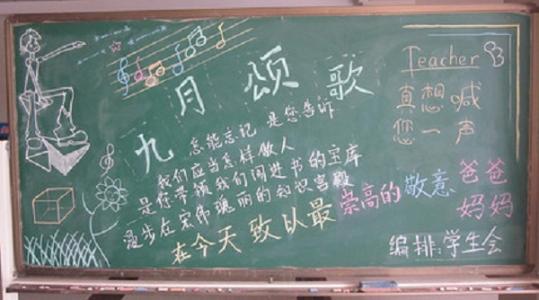 九月颂歌
怎能忘记 是您告诉
我们应当怎样做人
是您带领我们闯进书的宝库
漫步在宏伟瑰丽的知识宫殿
在今天致以最崇高的敬意
Teacher
真想喊
您一声
爸爸
妈妈
编排:学生会